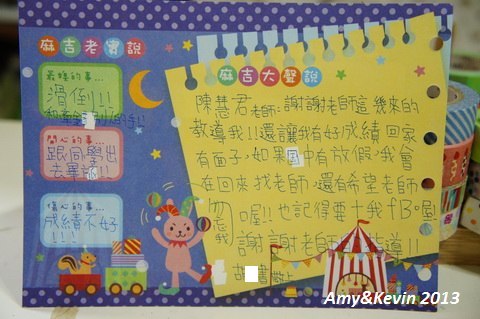 麻吉老實說
最糗的事...
滑倒!!
開心的事...
跟同學出
去畢
傷心的事...
成績不好
!!!
麻吉大聲說
陳慧君老師:謝謝老師這幾來的
教導我!!還讓我有好成績回家
有面子,如果國中有放假,我會
在回來找老師,還有希望老師
勿忘我喔!!也記得要+我fB喔
謝謝老師指導!!
敬上
Amy&Kevin 2013